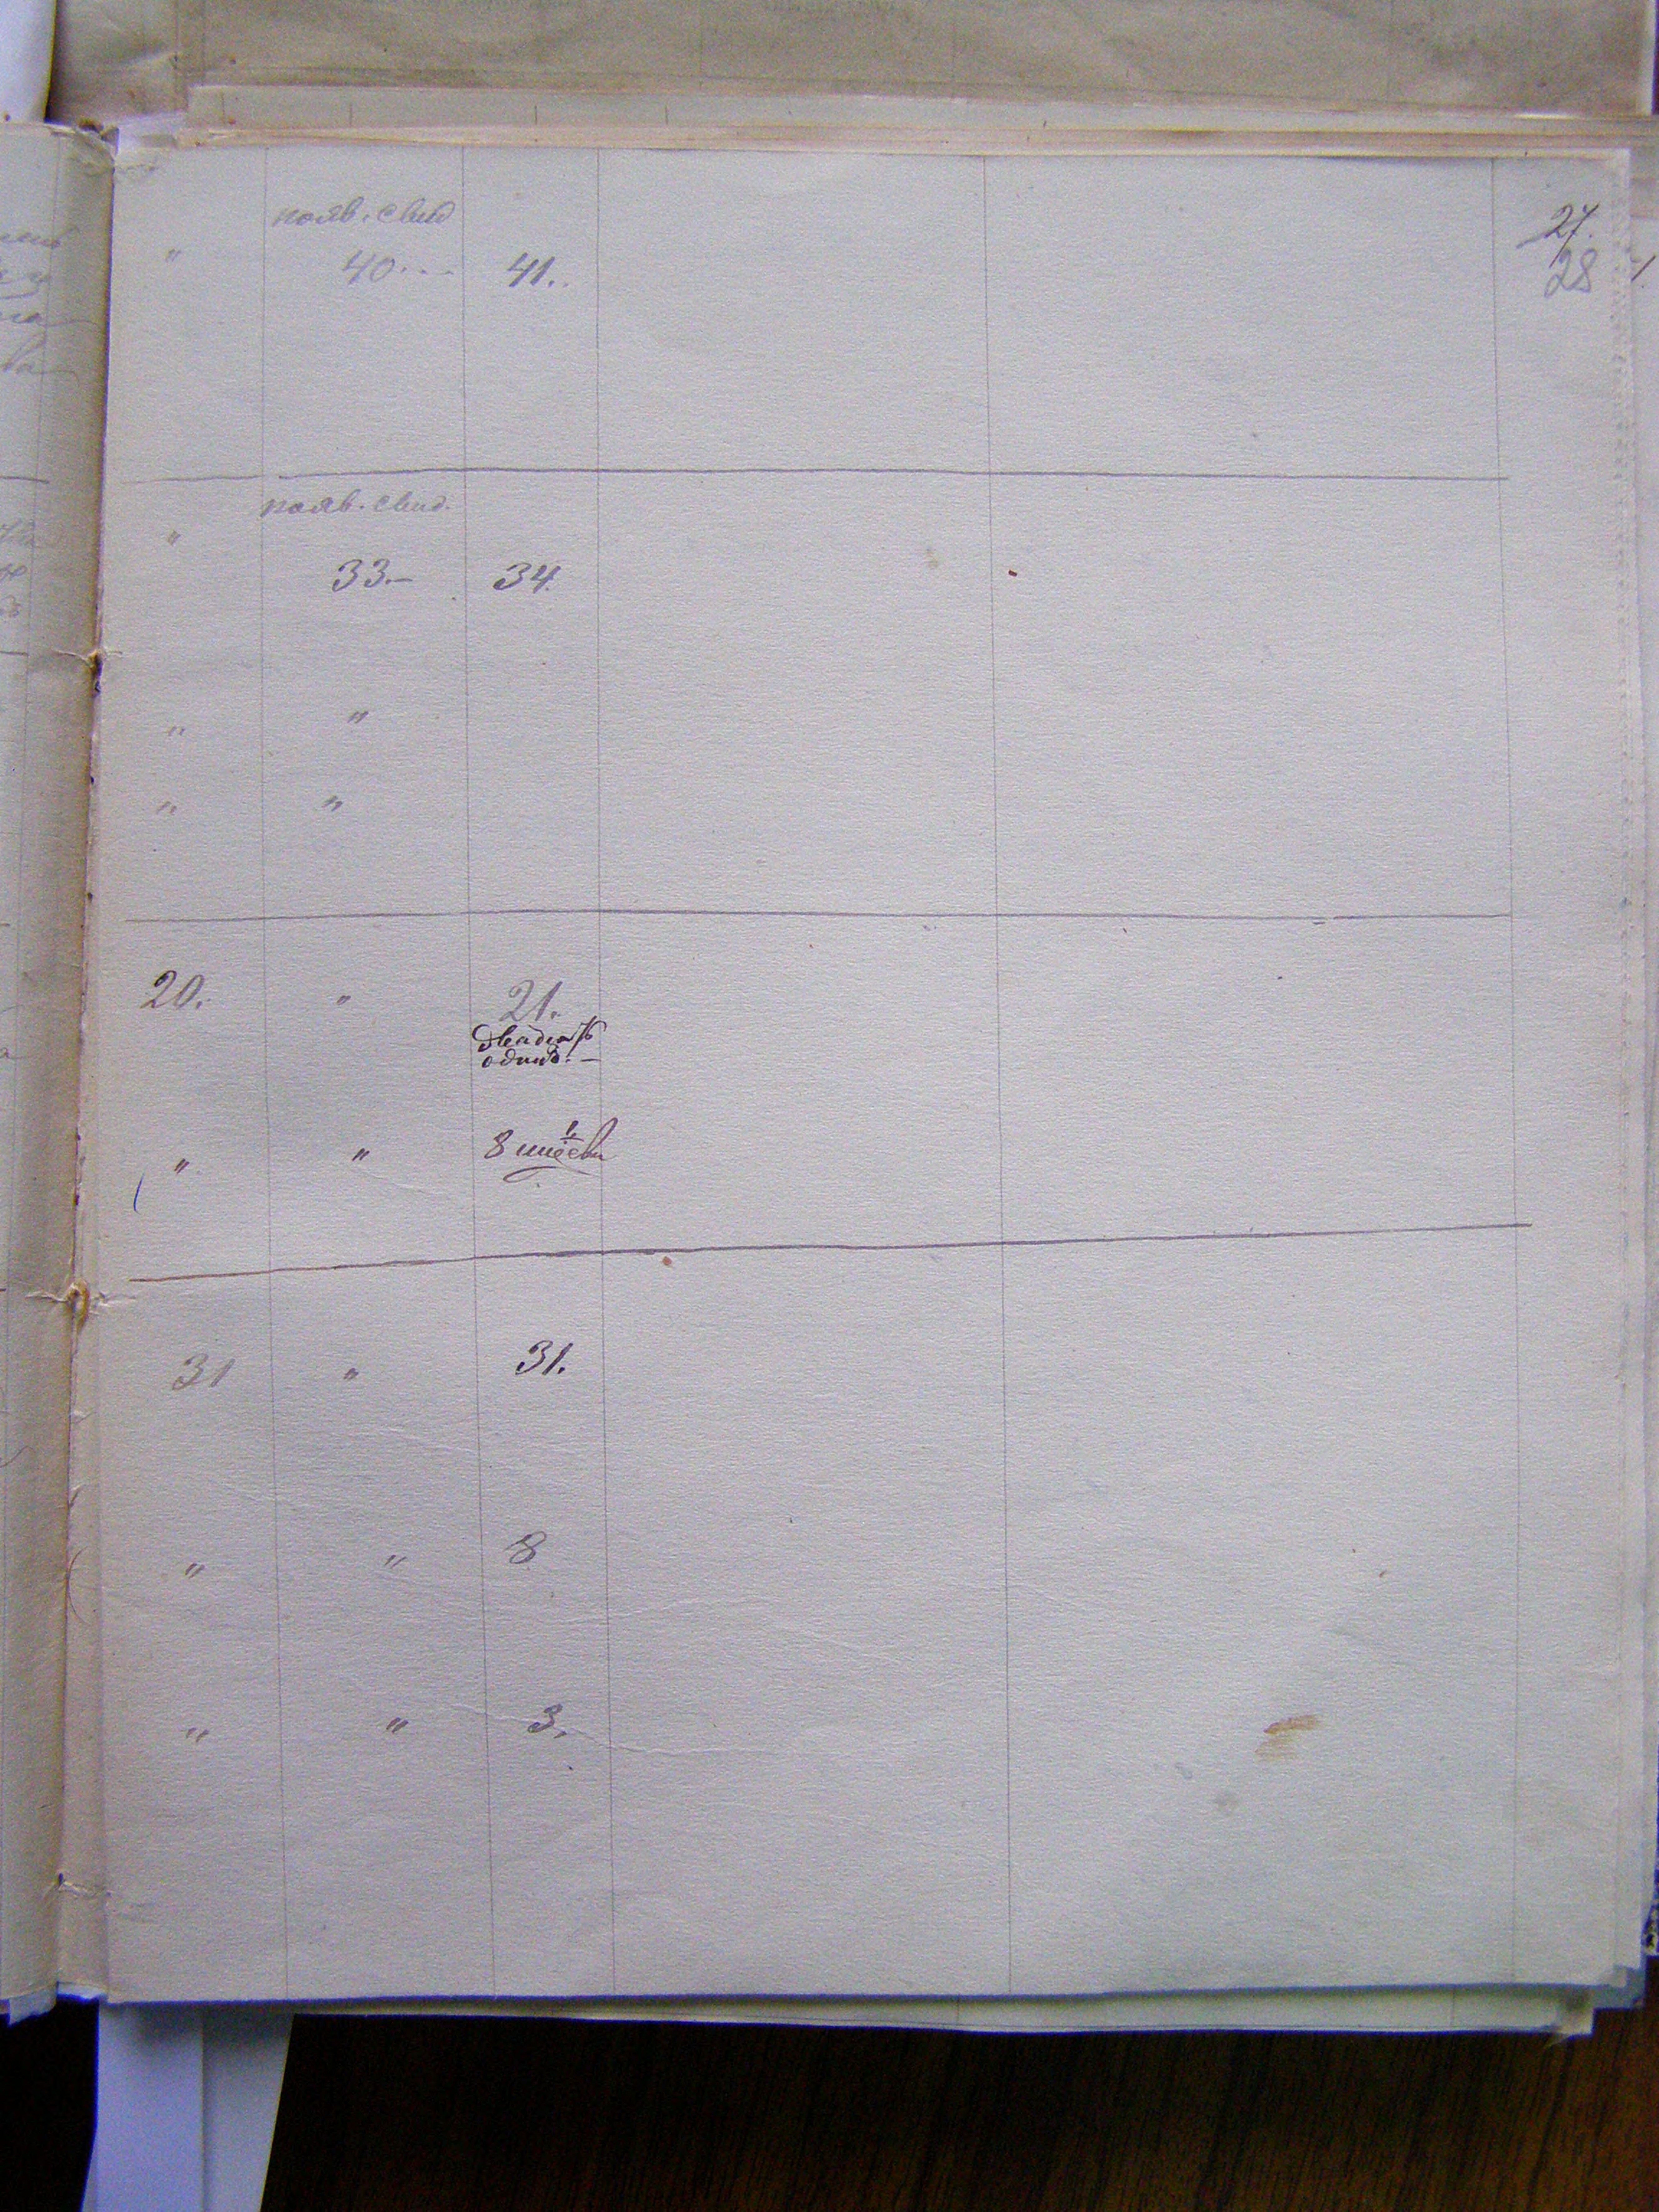 27.
28
появ. свид
" 40... 41..
появ. свид.
"
33.- 34.
" "
" "
20. " 21.
двадцать
одинъ. -
" " 8
31 " 31.
" " 8
" " 3.